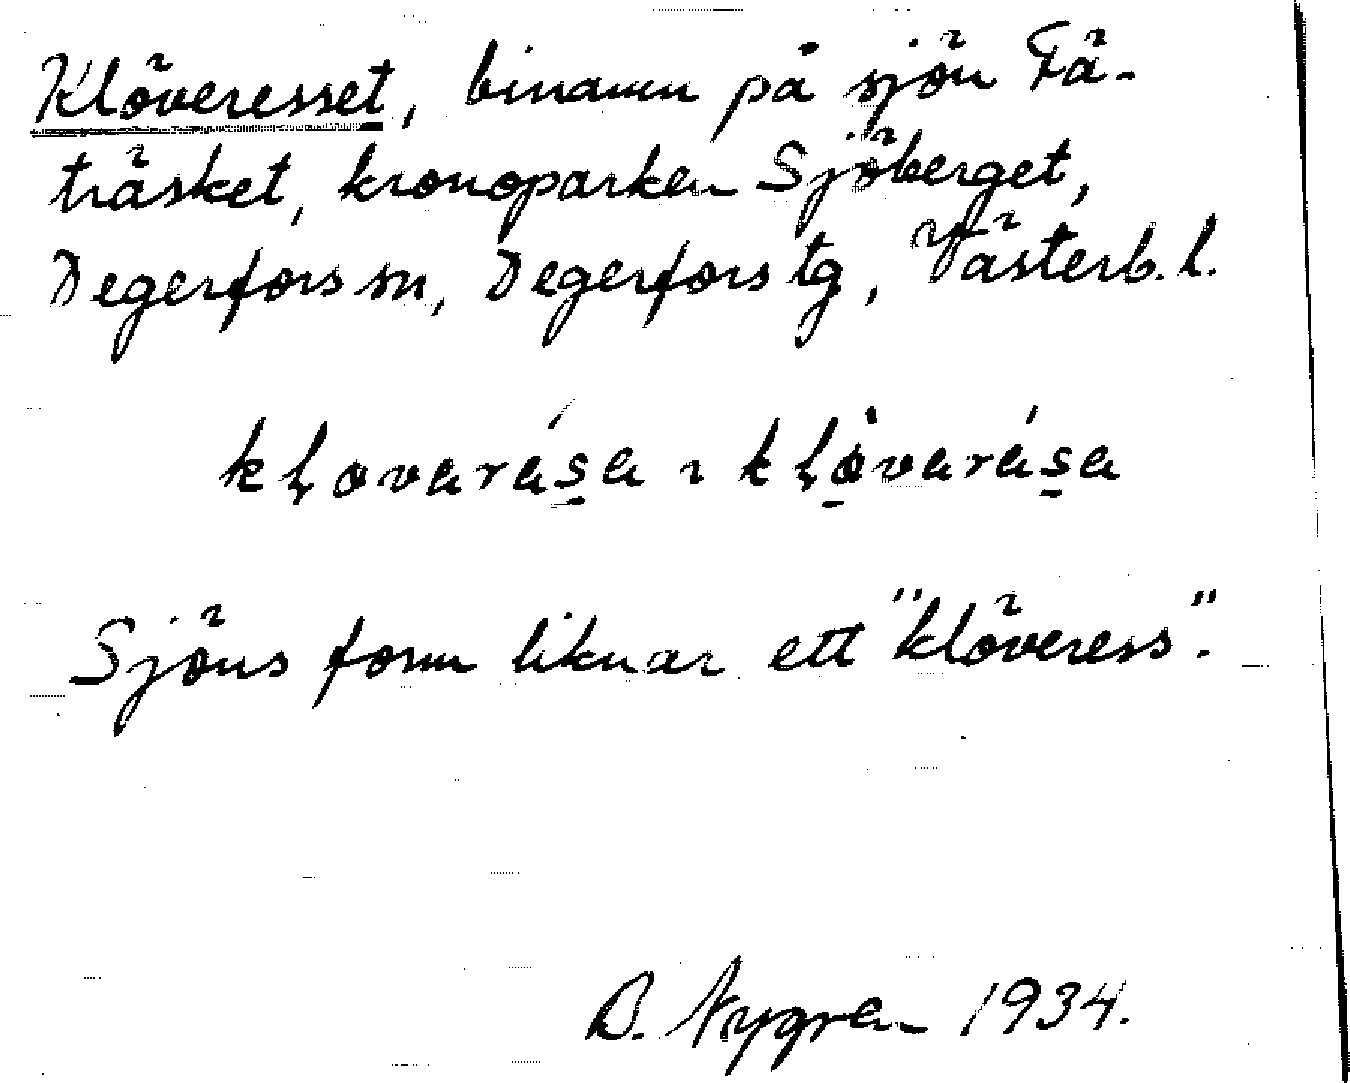 Klöveresset, binamn på sjön Fä-
träsket, kronoparken Sjöberget,
Degerfors sn, Degerfors tg, Västerb. l.
Sjöns form liknar ett "klöveress".
B. Nygren 1934.